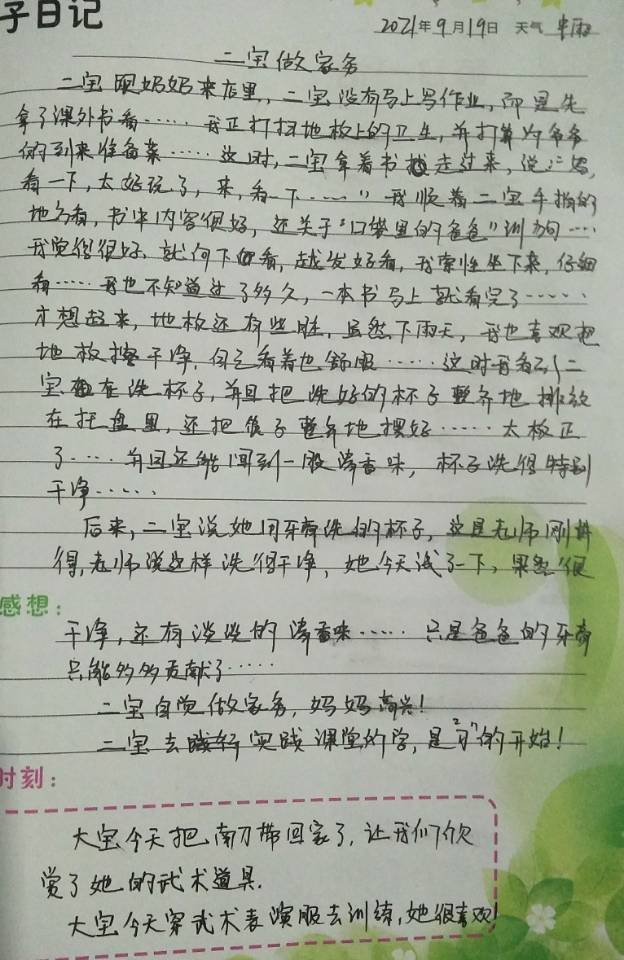 子日记
2021年9月19日 天气 中雨
二宝做家务
二宝跟妈妈来店里,二宝没有马上写作业,而是先
拿了课外书看……我正打扫地板上的卫生,并打算为爷爷
的到来准备菜……这时,二宝拿着书走过来,说:"妈,
看一下,太好玩了,来,看一下……"我顺着二宝手指的
地方看,书中内容很好,还关于"口袋里的爸爸"训狗……
我觉得很好,就向下看,越发好看,我索性坐下来,仔细
看……我也不知道过了多久,一本书马上就看完了……
才想起来,地板还有些脏,虽然下雨天,我也喜欢把
地板擦干净,自己看着也舒服……这时我看到二
宝在洗杯子,并且把洗好的杯子整齐地排放
在托盘里,还把筷子整齐地摆好……太板正
了……并且还能闻到一股清香味,杯子洗得特别
干净……
后来,二宝说她用牙膏洗的杯子,这是老师刚讲
得,老师说这样洗得干净,她今天试了一下,果然很
感想:
干净,还有淡淡的清香味……只是爸爸的牙膏
只能多多贡献了……
二宝自觉做家务,妈妈高兴!
二宝去践行实践课堂的学,是"习"的开始!
时刻:
大宝今天把南刀带回家了,让我们欣
赏了她的武术道具.
大宝今天穿武术表演服去训练,她很喜欢!